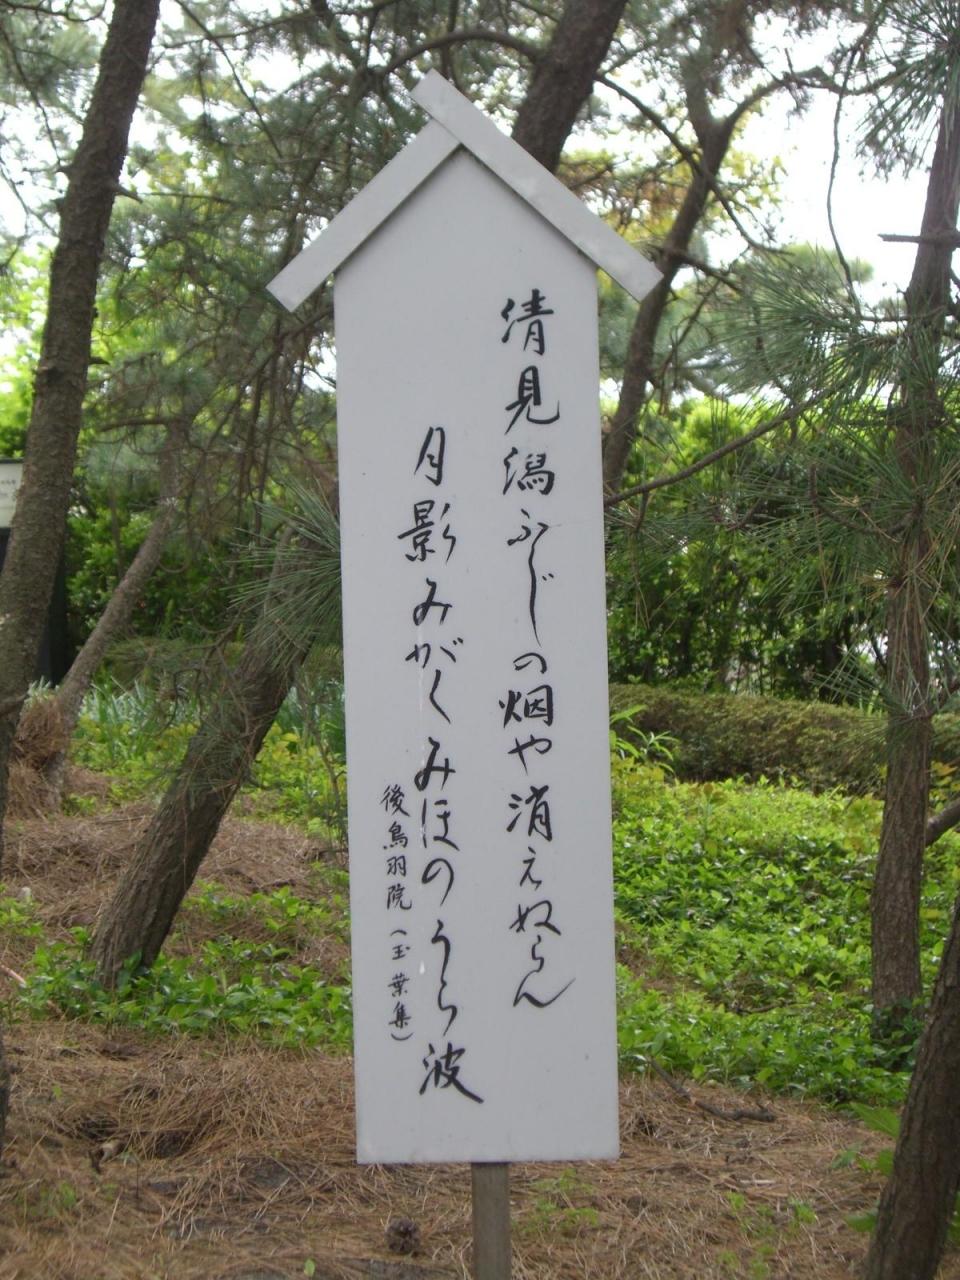 清見潟ふじの烟や消えぬらん
月影みがくみほのうら波
後鳥羽院(玉葉集)